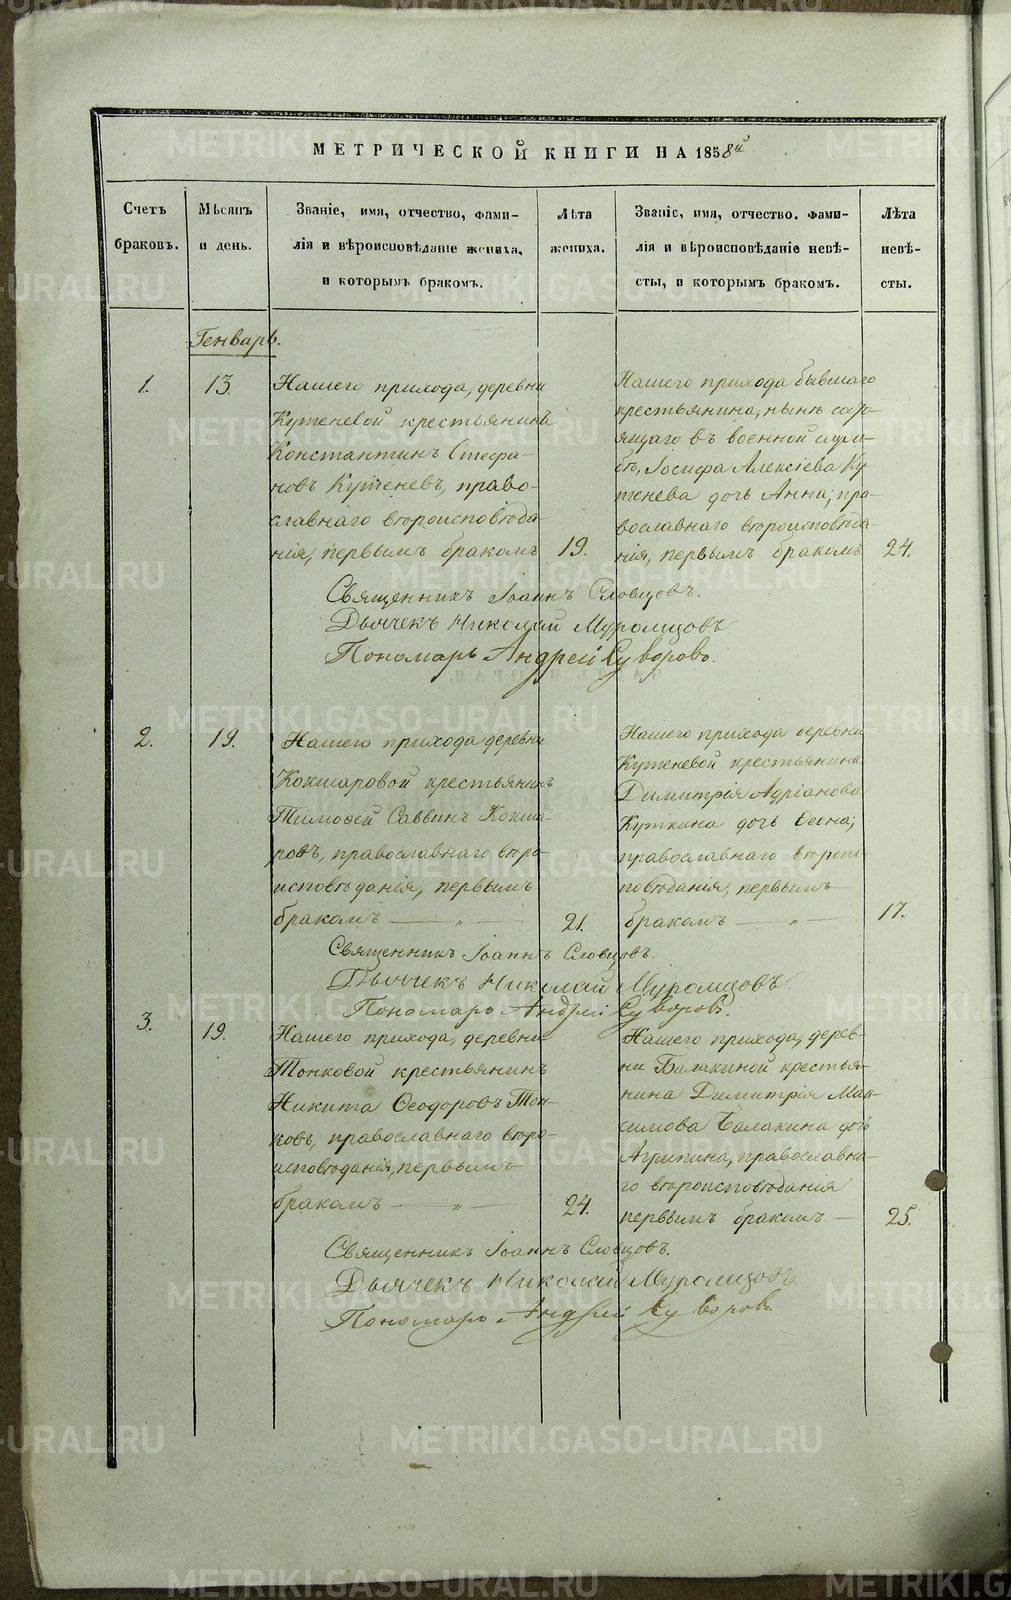 МЕТРИЧЕСКОЙ КНИГИ НА 1858й
Счетъ браковъ.
Мѣсяцъ и день.
Званіе, имя, отчество, фами-
лія и вѣроисповѣданіе жениха,
и которымъ бракомъ.
Лѣта жениха.
Званіе, имя, отчество. фами-
лія и вѣроисповѣданіе невѣ-
сты, и которымъ бракомъ.
Лѣта невѣ-
сты.
Генварь.
1.
13.
Нашего прихода, деревни
Кутеневой крестьянинъ
Константинъ Стефа-
новъ Кутеневъ, право-
славнаго вѣроисповѣда-
нія, первымъ бракомъ
19.
Нашего прихода бывшаго
крестьянина, нынѣ состо-
ящаго въ военной служ-
бѣ, Іосифа Алексіева Ку-
тенева дочь Анна, пра-
вославнаго вѣроисповѣда-
нія, первымъ бракомъ
24.
Священникъ Іоаннъ Словцовъ.
Дьячекъ Николай Муромцовъ.
Пономарь Андрей Суворовъ.
2.
19.
Нашего прихода деревни
Кокшаровой крестьянинъ
Тимоѳей Саввинъ Кокша-
ровъ, православнаго вѣро-
исповѣданія, первымъ
бракомъ — „ —
21.
Нашего прихода деревни
Кутеневой крестьянина
Димитрія Адріанова
Куткина дочь
православнаго вѣроис-
повѣданія, первымъ
бракомъ — „ —
17.
Священникъ Іоаннъ Словцовъ.
Дьячекъ Николай Муромцовъ.
Пономарь Андрей Суворовъ.
3.
19.
Нашего прихода, деревни
Тонковой крестьянинъ
Никита Ѳеодоровъ Тон-
ковъ, православнаго вѣро-
исповѣданія, первымъ
бракомъ — „ —
24.
Нашего прихода, дерев-
ни Балакиной крестья-
нина Димитрія Мак-
симова Балакина дочь
Агрипина, православна-
го вѣроисповѣданія
первымъ бракомъ —
25.
Священникъ Іоаннъ Словцовъ.
Дьячекъ Николай Муромцовъ.
Пономарь Андрей Суворовъ.
METRIKI.GASO-URAL.RU